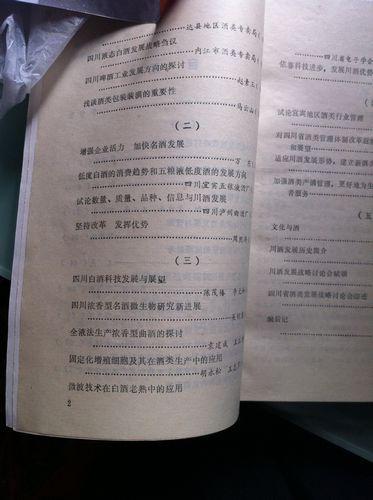 达县地区酒类专卖局
四川液态白酒发展战略刍议
内江市酒类专卖局
四川啤酒工业发展方向的探讨
浅谈酒类包装装潢的重要性
(二)
增强企业活力 加快名酒发展
低度白酒的消费趋势和五粮液低度酒的发展方向
四川宜宾五粮液酒厂
试论数量、质量、品种、信息与川酒发展
四川泸州曲酒厂
坚持改革 发挥优势
(三)
四川白酒科技发展与展望
陈茂椿
四川浓香型名酒微生物研究新进展
全液法生产浓香型曲酒的探讨
袁建成
固定化增殖细胞及其在酒类生产中的应用
胡永松
微波技术在白酒老熟中的应用
2
四川省电子学会
依靠科技进步,发展川酒优势
试论宜宾地区酒类行业管理
对四川省酒类管理体制改革
和展望
适应川酒发展形势,建立新
加强酒类产销管理,更好地为生
者服务
文化与酒
川酒发展历史简介
川酒发展战略讨论会
四川省酒类发展战略讨论会综述
编后记